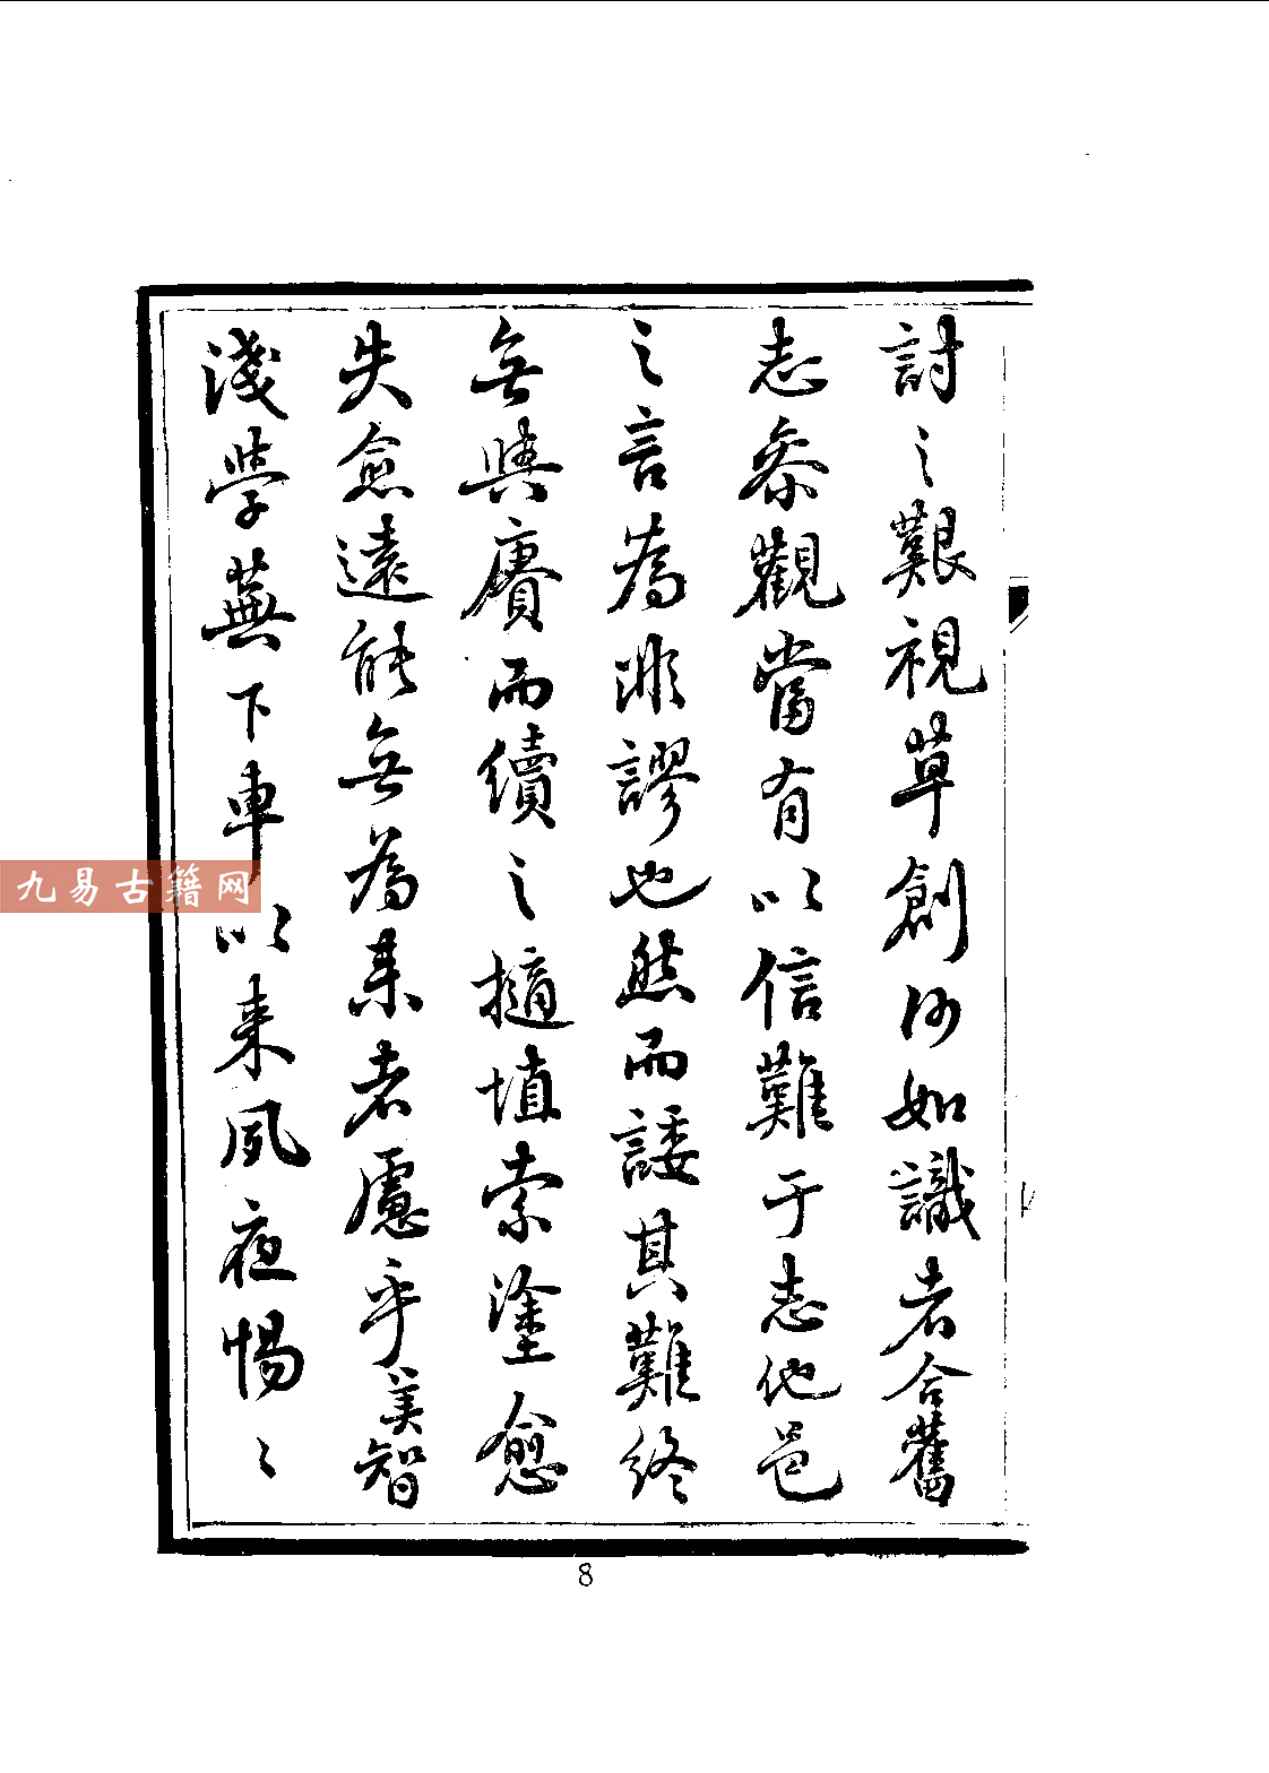 討之艱視草創何如識者合舊
志叅觀當有以信難于志他邑
之言為非謬也然而諉其難終
無與賡而續之擿埴索塗愈
失愈遠能無為来者慮乎美智
淺學蕪下車以来夙夜惕〻
九易古籍网
8